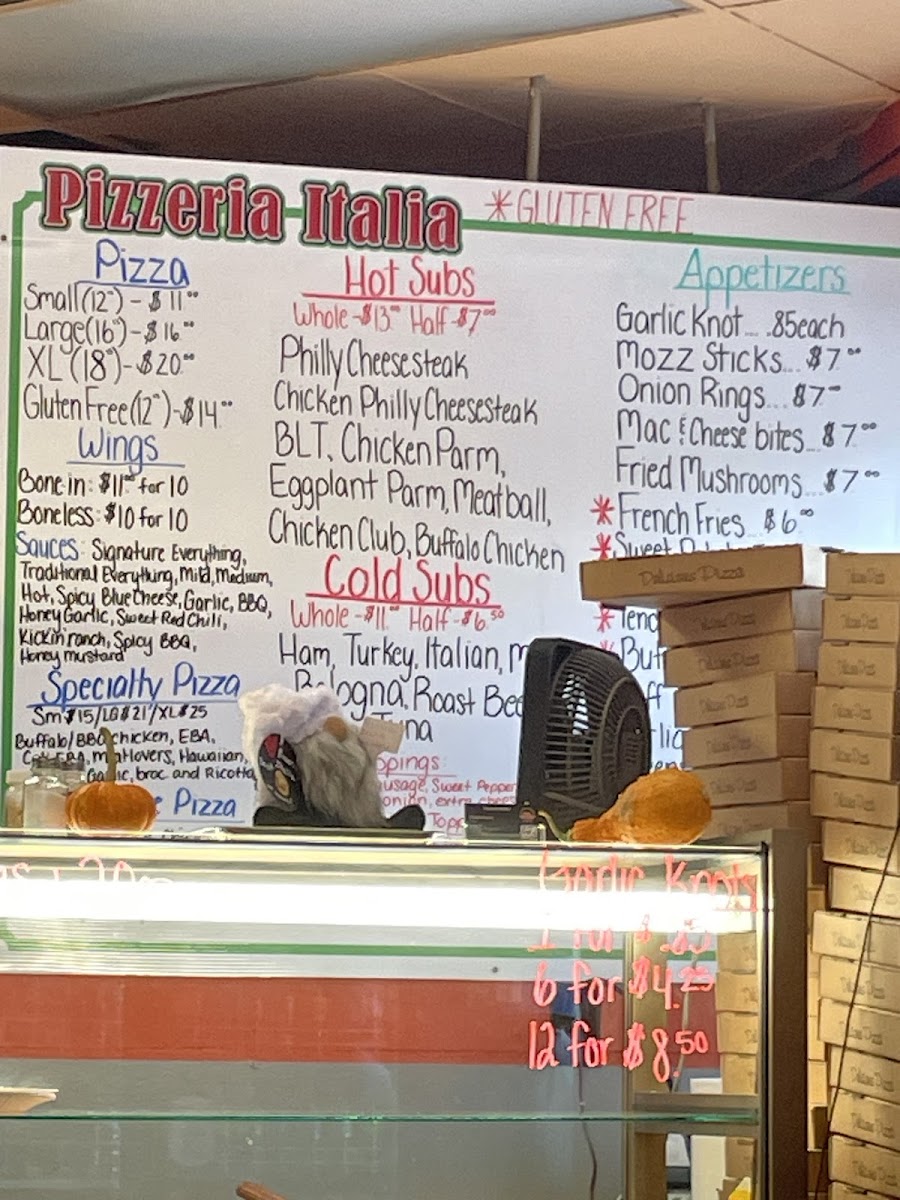 Pizzeria Italia
*GLUTEN FREE
Pizza
Small(12") - $11.00
Large(16") - $16.00
XL (18") - $20.00
Gluten Free(12") - $14.00
Wings
Bone in: $11.00 for 10
Boneless: $10 for 10
Sauces: Signature Everything,
Traditional Everything, Mild, Medium,
Hot, Spicy Blue Cheese, Garlic, BBQ,
Honey Garlic, Sweet Red Chili,
Kickin ranch, Spicy BBQ,
Honey mustard
Specialty Pizza
Sm $15/LG $21/XL $25
Buffalo/BBQ chicken, EBA,
Hawaiian,
broc and Ricotta
Pizza
Hot Subs
Whole - $13.00 Half - $7.00
Philly Cheesesteak
Chicken Philly Cheesesteak
BLT, Chicken Parm,
Eggplant Parm, Meatball,
Chicken Club, Buffalo Chicken
Cold Subs
Whole - $11.00 Half - $6.50
Ham, Turkey, Italian,
Bologna, Roast
Appetizers
Garlic Knot.... .85 each
Mozz Sticks... $7.00
Onion Rings... $7
Mac & Cheese bites... $7.00
Fried Mushrooms... $7.00
*French Fries... $6.00
*Sweet
Delicious Pizza
Garlic Knots
6 for $4.25
12 for $8.50